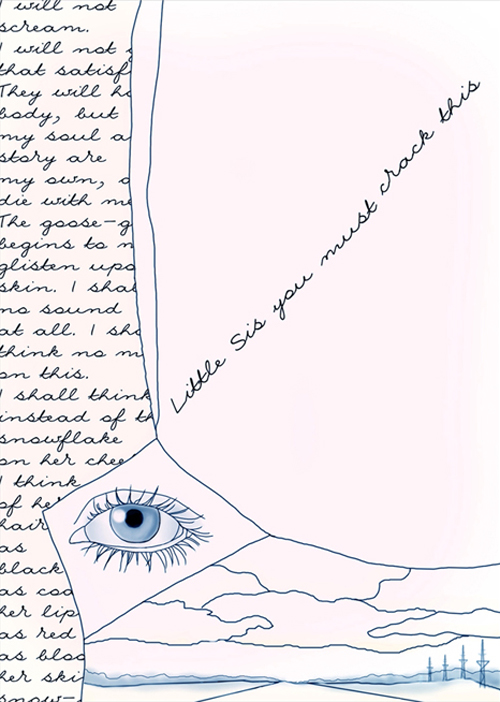 I will not
scream.
I will not
that satisf
They will ha
body, but
my soul a
story are
my own,
die with me
The goose-g
begins to
glisten upo
skin. I shal
no sound
at all. I sha
think no m
on this.
I shall think
instead of th
snowflake
on her chee
I think
of her
hair
as
black
as coa
her lip
as red
as bloo
her ski
snow-
Little Sis you must crack this